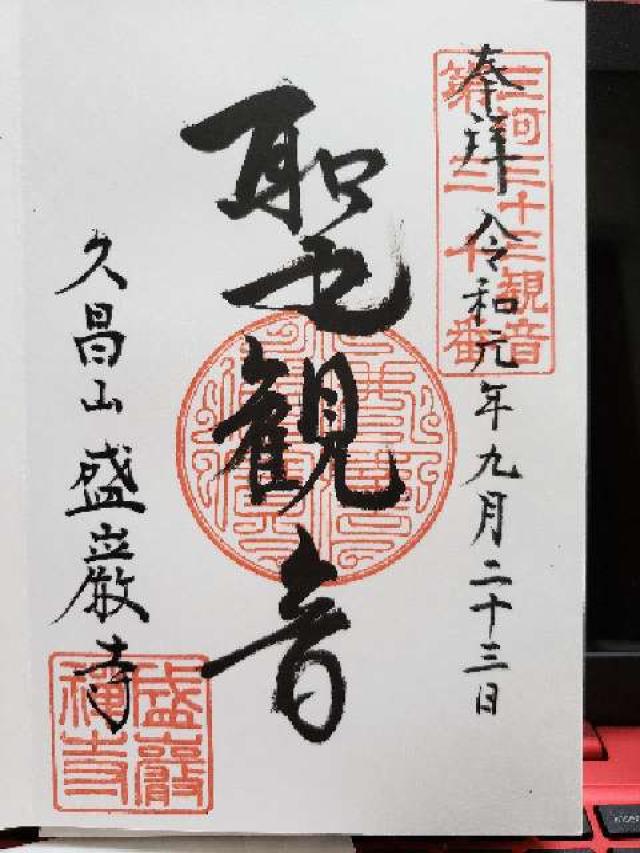 奉拝 令和元年九月二十三日
三河三十三観音
第二十番
聖観音
久昌山 盛巌寺
盛巖
禪寺